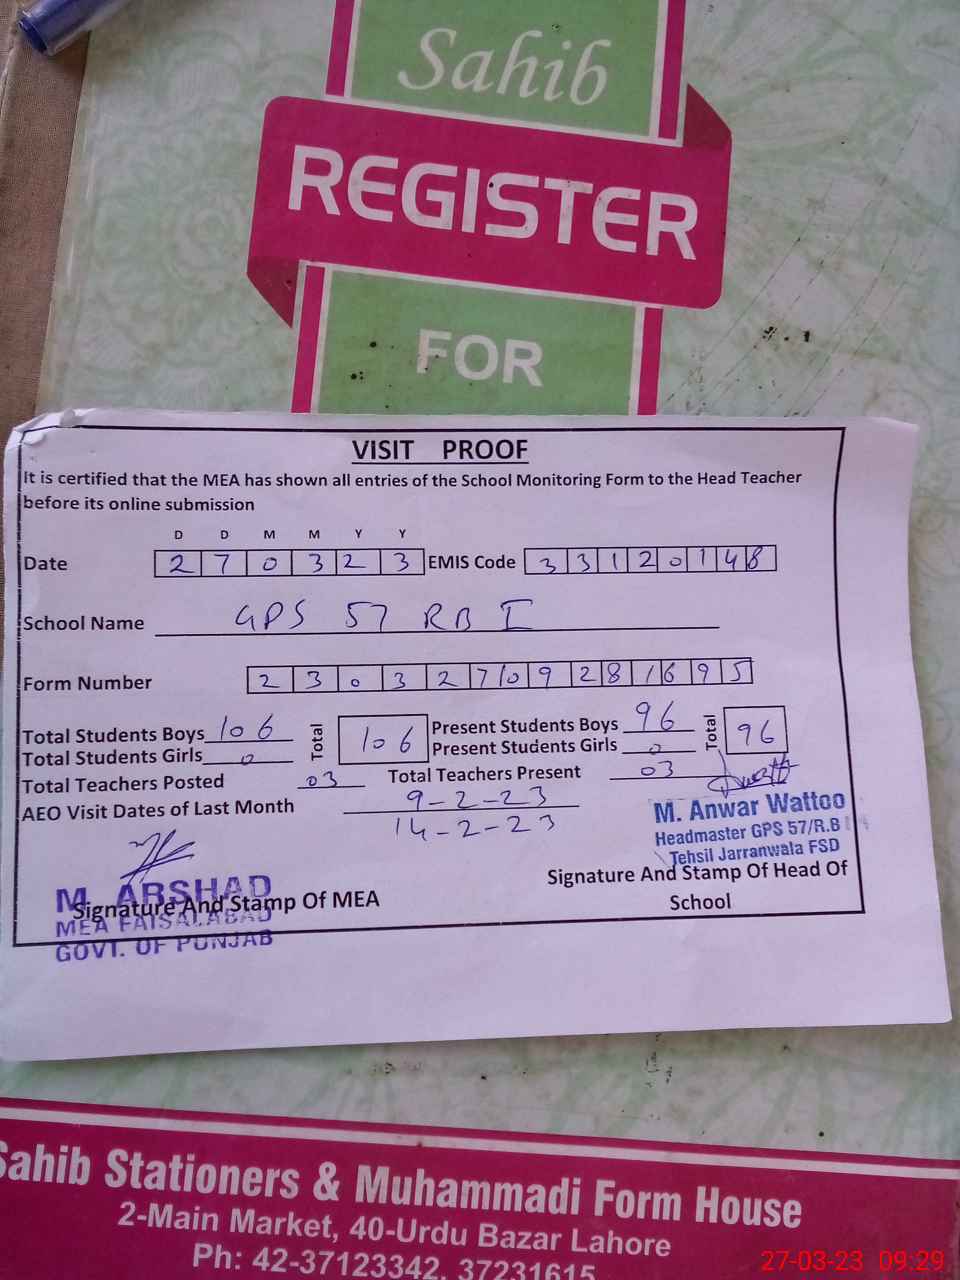 Sahib
REGISTER
FOR
VISIT PROOF
It is certified that the MEA has shown all entries of the School Monitoring Form to the Head Teacher
before its online submission
D D M M Y Y
Date 2 7 0 3 2 3 EMIS Code 3 3 1 2 0 1 4 8
School Name GPS 57 RB I
Form Number 2 3 0 3 2 7 0 9 2 8 1 6 9 5
Total Students Boys 106 Total 106 Present Students Boys 96 Total 96
Total Students Girls 0 Present Students Girls 0
Total Teachers Posted 03 Total Teachers Present 03
AEO Visit Dates of Last Month 9-2-23
14-2-23
M. Anwar Wattoo
Headmaster GPS 57/R.B
Tehsil Jarranwala FSD
Signature And Stamp Of Head Of
School
M. ARSHAD
Signature And Stamp Of MEA
MEA FAISALABAD
GOVT. OF PUNJAB
Sahib Stationers & Muhammadi Form House
2-Main Market, 40-Urdu Bazar Lahore
Ph: 42-37123342, 37231615
27-03-23 09:29